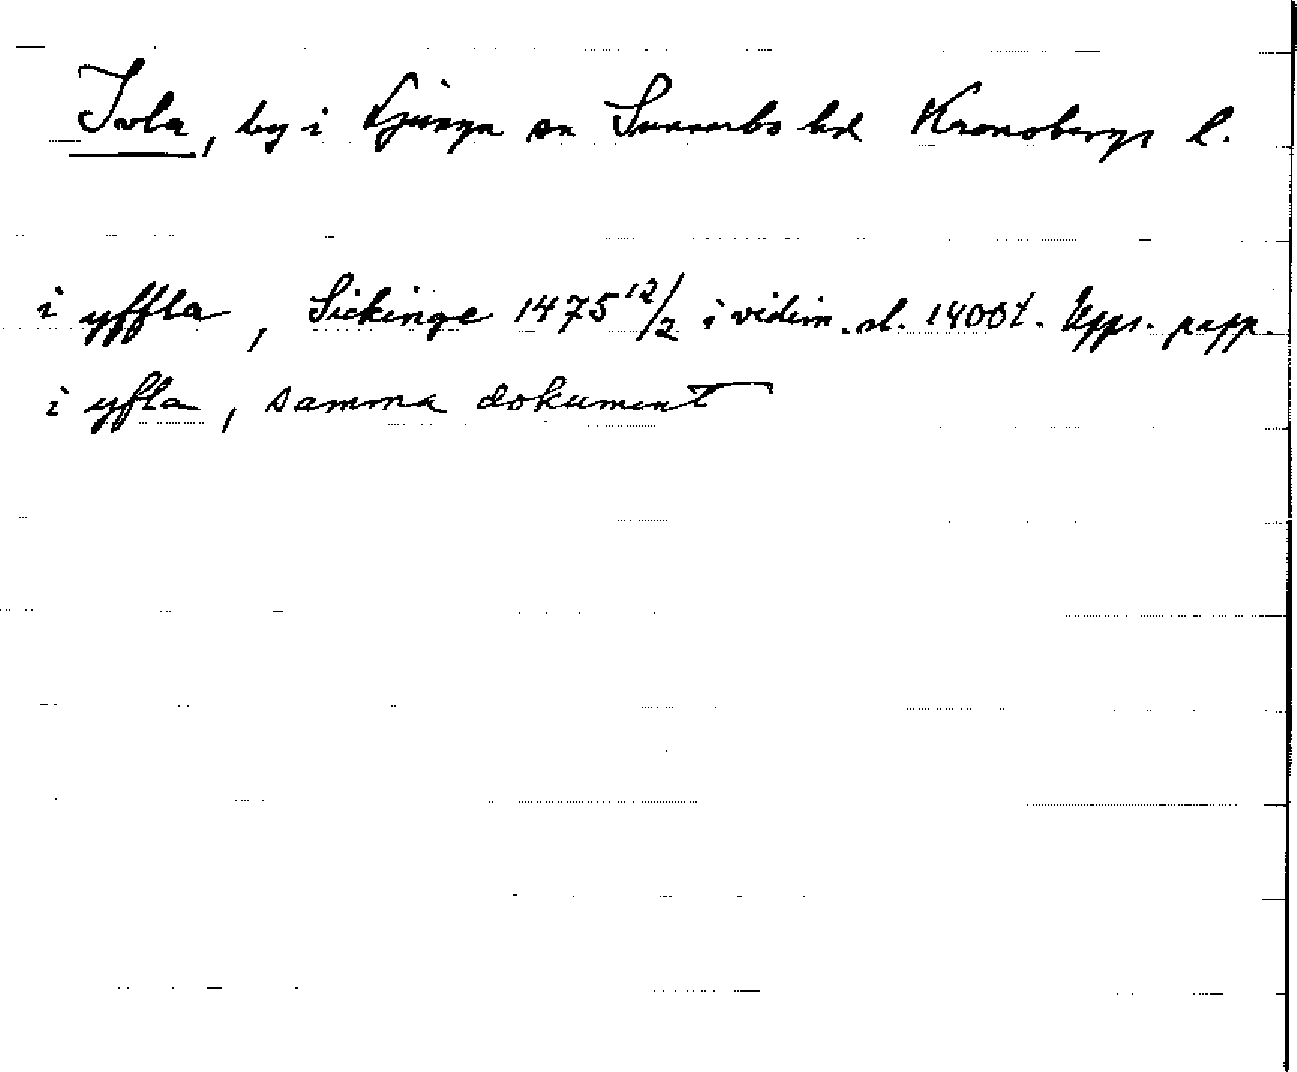 Ivla, by i Ljunga sn Sunnerbo hd Kronobergs l.
i yffla, Sickinge 1475 12/2 i vidim. sl. 1400t. Upps. papp.
i yfla, samma dokument